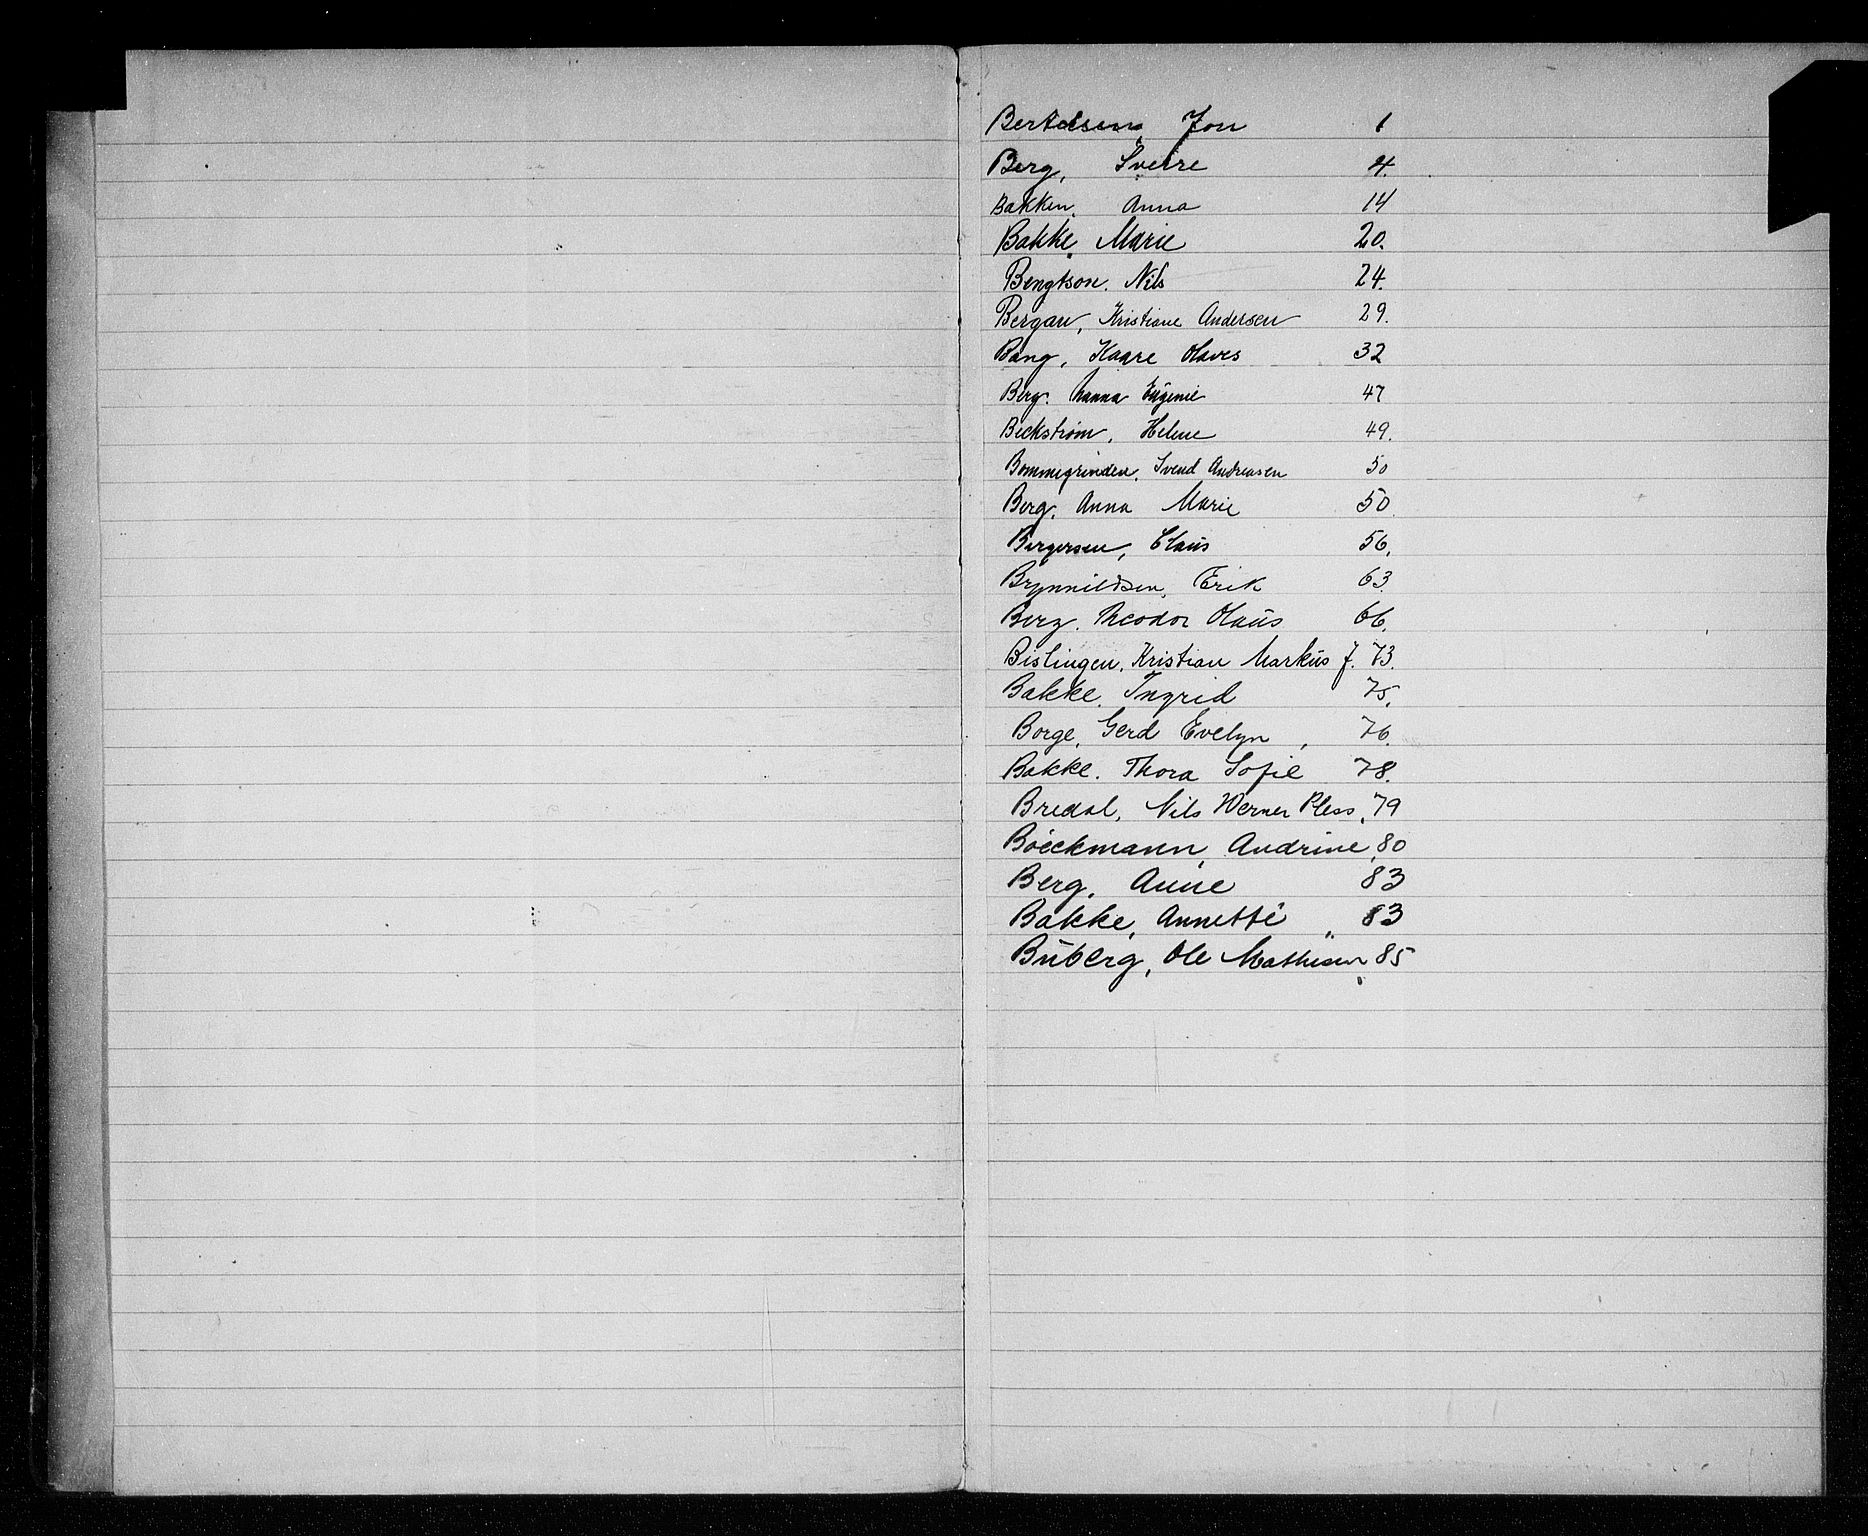 Bertelsen, Jon 1
Berg, Sverre 4.
Bakken, Anna 14
Bakke, Marie 20.
Bengtson. Nils 24.
Bergan, Kristiane Andersen 29.
Bang, Kaare Olaves 32
Berg. Nanna Eugenie 47
Beckstrøm, Helene 49.
Bommegrinden. Svend Andreasen 50
Berg. Anna Marie 50.
Bergersen, Claus 56.
Brynnildsen, Erik 63.
Berg. Theodor Olaus 66.
Bislingen, Kristian Markus J. 73.
Bakke. Ingrid 75.
Borge, Gerd Evelyn, 76.
Bakke. Thora Sofie 78.
Bredal, Nils Werner Pless, 79
Böeckmann, Andrine, 80
Berg, Anne 83
Bakke, Annette „ 83
Buberg, Ole Mathisen 85